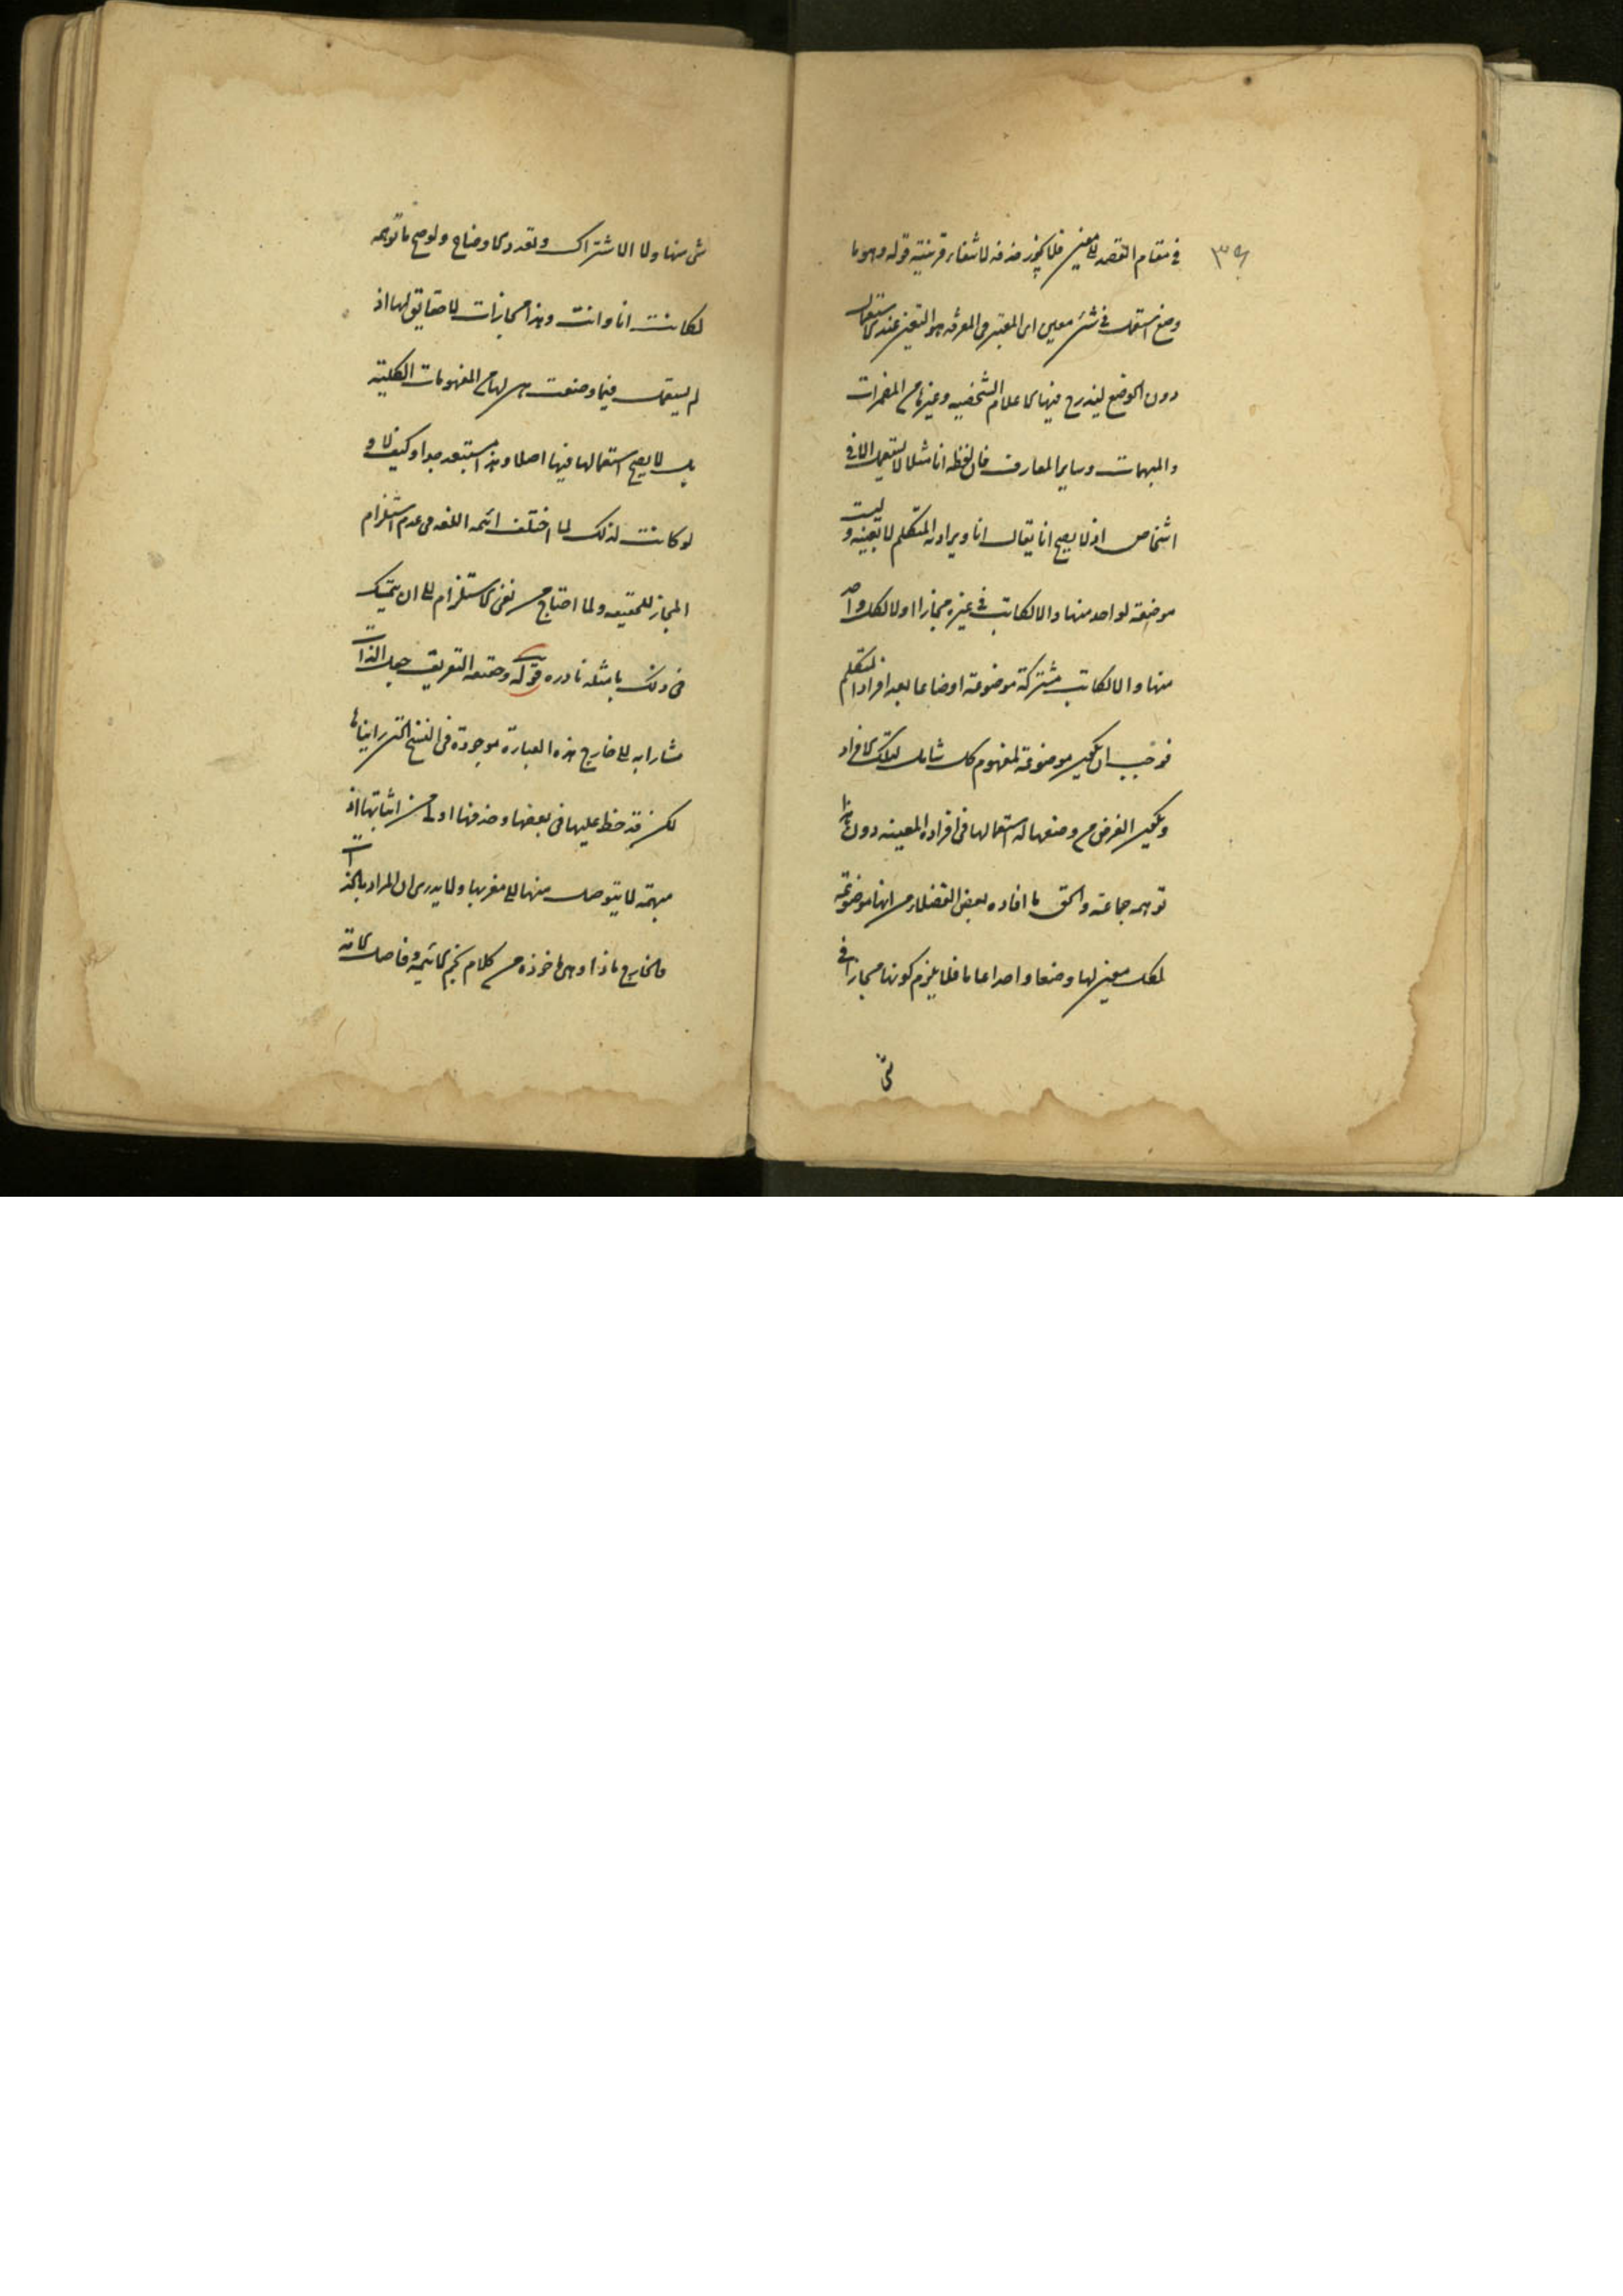 في مقام القصد الى معين فلا يجوز حذفه لانتفاء قرينته قوله وهو ما
وضع ليستعمل في شئ معين اى المعتبر فى المعرفة هو التعين عند الاستعمال
دون الوضع ليندرج فيها الاعلام الشخصيه وغيرها من المضمرات
والمبهمات وساير المعارف فان لفظة انا مثلا لا يستعمل الا فى
اشخاص اذ لا يصح ان يقال انا ويراد به المتكلم لا بعينه و ليست
موضوعة لواحد منها والا لكانت في غيره مجازا ولا لكل واحد
منها والا لكانت مشتركة موضوعة اوضاعا بعدد افراد المتكلم
فوجب ان يكون موضوعة لمفهوم كلى شامل لتلك الافراد
ويكون الغرض من وضعها له استعمالها فى افراده المعينه دونه هذا ما
توهمه جماعة والحق ما افاده بعض الفضلاء من انها موضوعة
لكل معين منها وضعا واحدا عاما فلا يلزم كونها مجازا فى
شئ
شئ منها ولا الاشتراك وتعدد الاوضاع ولو صح ما توهمه
لكانت انا وانت وهذا مجازات لا حقايق لها اذ
لم يستعمل فيما وضعت هى لها من المفهومات الكلية
بل لا يصح استعمالها فيها اصلا وهذا مستبعد جدا وكيف لا و
لو كانت لذلك لما اختلف ائمة اللغه فى عدم استلزام
المجاز للحقيقه ولما احتاج من نفى الاستلزام الى ان يتمسك
فى ذلك بامثله نادره قوله وحقيقه التعريف جعل الذات
مشارا به الى خارج هذه العبارة موجودة فى النسخ التى رايناها
لكن قد خط عليها فى بعضها وحذفها اولى من اثباتها اذ
مبهمة لا يتوصل منها الى مغزيها ولا يدرى ان المراد بالذات
والخارج ماذا وهى ماخوذه من كلام نجم الائمة وفاضل الامة